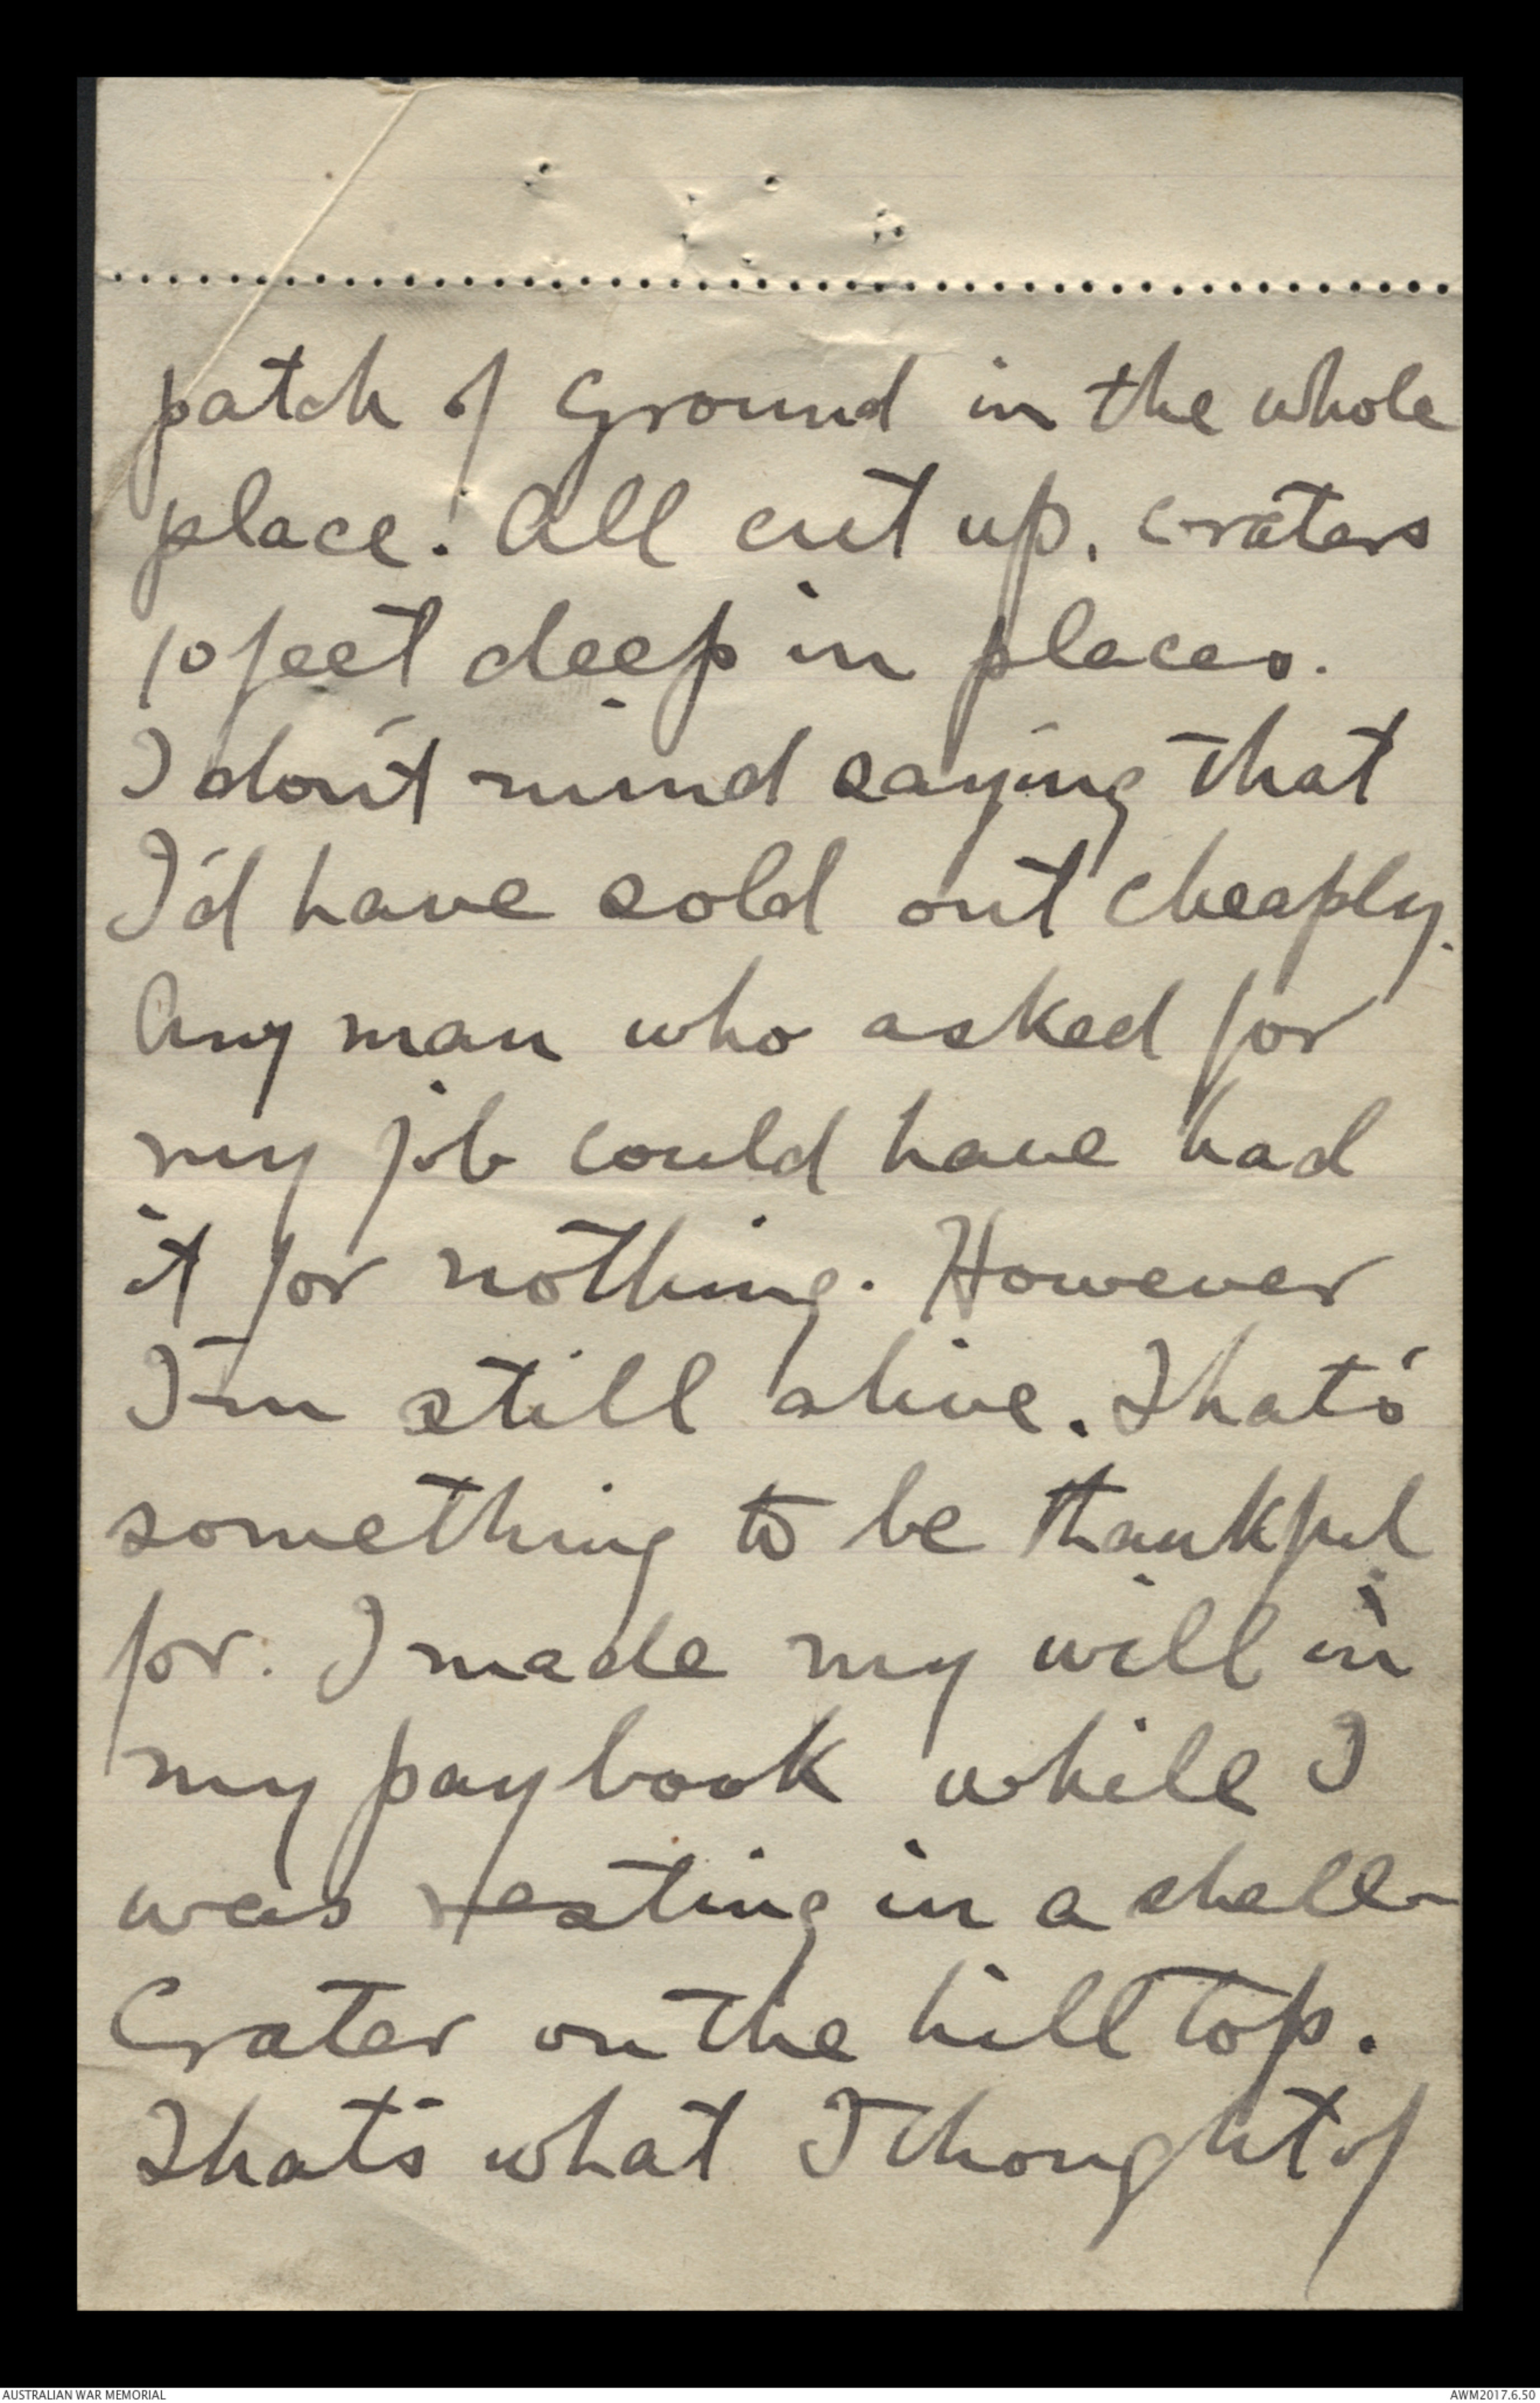 patch of Ground in the whole
place. All cut up, craters
10 feet deep in places.
I don't mind saying that
I'd have sold out cheaply.
Any man who asked for
my job could have had
it for nothing. However
I'm still alive. That's
something to be thankful
for. I made my will in
my paybook while I
was resting in a shell-
Crater on the hill top.
That's what I thought of
AUSTRALIAN WAR MEMORIAL
AWM2017.6.50